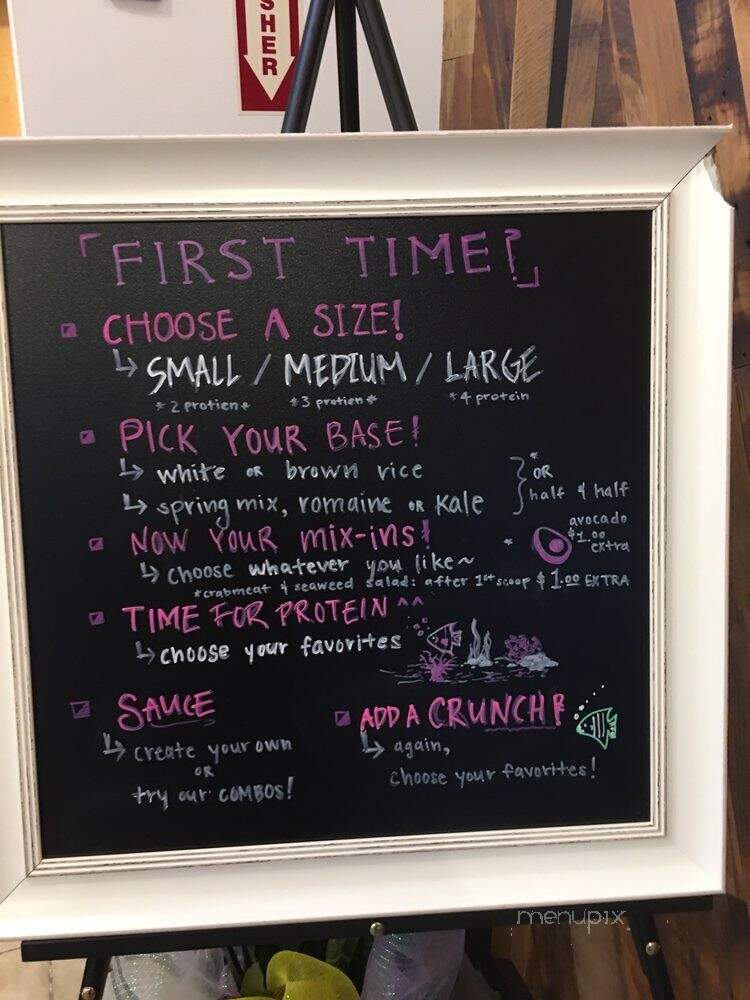 SHER
「FIRST TIME?」
CHOOSE A SIZE!
↳ SMALL / MEDIUM / LARGE
*2 protien* *3 protien* *4 protein
PICK YOUR BASE!
↳ white OR brown rice
↳ spring mix, romaine OR Kale
* OR
half & half
NOW YOUR mix-ins!
↳ choose whatever you like~
* avocado
$1.00
extra
*crabmeat & seaweed salad: after 1st scoop $1.00 EXTRA
TIME FOR PROTEIN ^^
↳ choose your favorites
SAUCE
↳ create your own
OR
try our COMBOS!
ADD A CRUNCH!
↳ again,
choose your favorites!
menupix